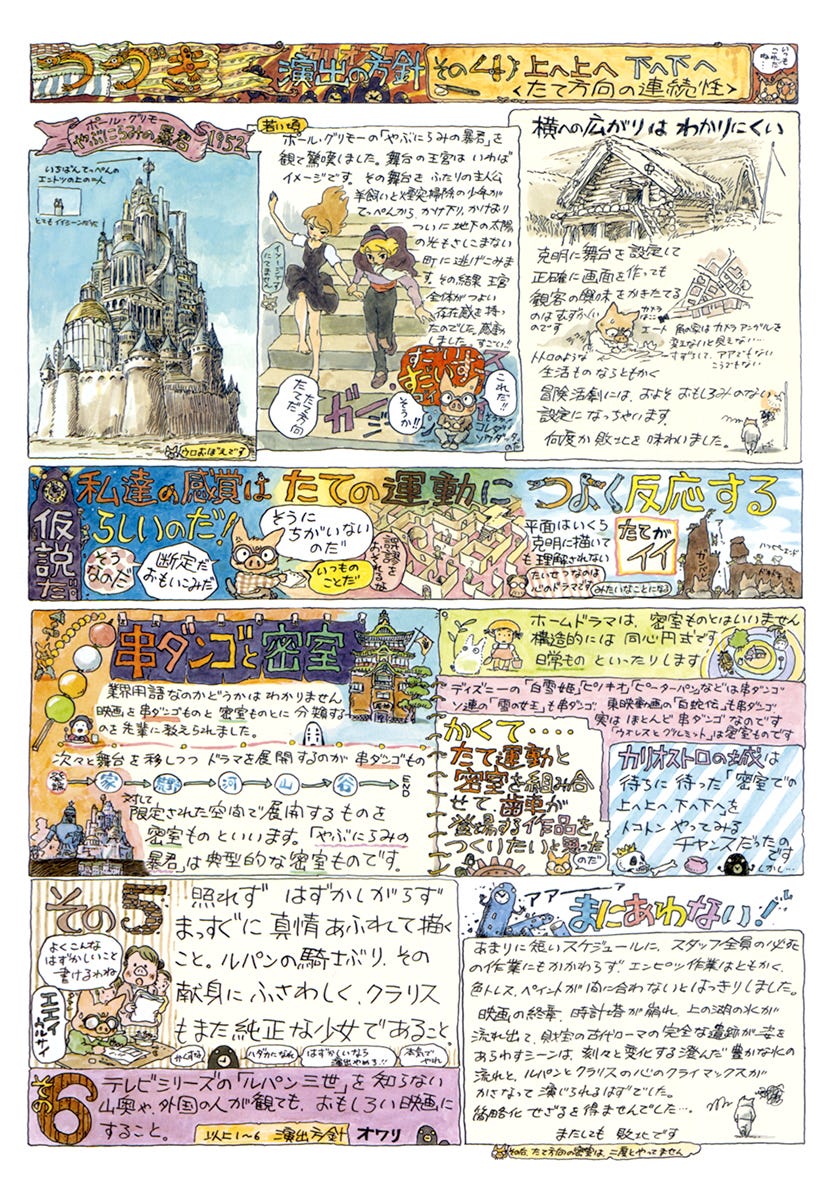 つづき
演出の方針
その4 上へ上へ 下へ下へ
<たて方向の連続性>
いつも
これだ
ポール・グリモー
やぶにらみの暴君
1952
いちばんてっぺんの
エントツの上の二人
とてもイイシーンだった
ウロおぼえです
若い頃
ポール・グリモーの「やぶにらみの暴君」を
観て驚嘆しました。舞台の王宮は いわば
イメージです。その舞台を ふたりの主人公
羊飼いと煙突掃除の少年が
てっぺんから、かけ下り、かけおり
ついに 地下の太陽
の光もさしこまない
町に逃げこみま
す。その結果 王宮
全体がつよい
存在感を持っ
たのでした。感動
しました。すごい!!
イメージです
にてません
たて方向
だた
ガーン
すごいす
すごいす
これだ!!
そうか!!
横への広がりは わかりにくい
克明に舞台を設定して
正確に画面を作っても
観客の興味をかきたてる
のはむずかしい
のです
カメラ
エート
風の家はカメラアングルを
変えないと見えない…
すずろして、アアでもない
こうでもない
トトロのような
生活ものならともかく
冒険活劇には、およそおもしろみのない
設定になっちゃいます
何度か敗北を味わいました。
仮説だ
私達の感覚は たての運動に つよく反応する
らしいのだ!
そう
なのだ
断定だ
おもいこみだ
そうに
ちがいない
のだ
いつもの
ことだ
平面はいくら
克明に描いて
も 理解されない
たいせつなのは
心のドラマです
たてが
イイ
みたいなことになる
ガンバレ
ハッピーエンド
串ダンゴと密室
業界用語なのかどうかは わかりません
映画を串ダンゴものと 密室ものとに 分類する
のを先輩に教えられました。
次々と舞台を移しつつ ドラマを展開するのが 串ダンゴもの
発端
家
河
山
谷
END
対して
限定された空間で展開するものを
密室もの といいます。「やぶにらみの
暴君」は典型的な密室ものです。
ホームドラマは、密室ものとはいいません
構造的には 同心円式です
日常もの といったりします
ディズニーの「白雪姫」「ピノキオ」「ピーターパン」などは串ダンゴ
ソ連の「雪の女王」も串ダンゴ 東映動画の「白蛇伝」も串ダンゴ
実は ほとんど 串ダンゴ なのです
「ウォレスとグルミット」は密室ものです
かくて‥‥
たて運動と
密室を組み合
せて 歯車が
登場する作品を
つくりたいと思った
のだ
カリオストロの城は
待ちに待った「密室での
上へ上へ、下へ下へ」を
トコトン やってみる
チャンスだったの
です
しかし…
その5
照れず はずかしがらず
まっすぐに 真情あふれて描く
こと。ルパンの騎士ぶり、その
献身に ふさわしく、クラリス
もまた純正な少女であること。
よくこんな
はずかしいこと
書けるわね
エエイ
ウルサイ
かくすな
ハダカになれ
はずかしいなら
演出やめろ!!
本気で
やれ
その6
テレビシリーズの「ルパン三世」を知らない
山奥や、外国の人が観ても、おもしろい映画に
すること。
以上1〜6 演出方針 オワリ
アアーーァ
まにあわない!
あまりに短いスケジュールに、スタッフ全員の必死
の作業にもかかわらず、エンピツ作業はともかく、
色トレス、ペイントが間に合わないとはっきりしました。
映画の終章、時計塔が崩れ、上の湖の水が
流れ出て、財宝の古代ローマの完全な遺跡が姿を
あらわすシーンは、刻々と変化する澄んだ豊かな水の
流れと、ルパンとクラリスの心のクライマックスが
かさなって演じられるはずでした。
簡略化せざるを得ませんでした…。
またしても 敗北です
その后、たて方向の密室は、二度とやってません